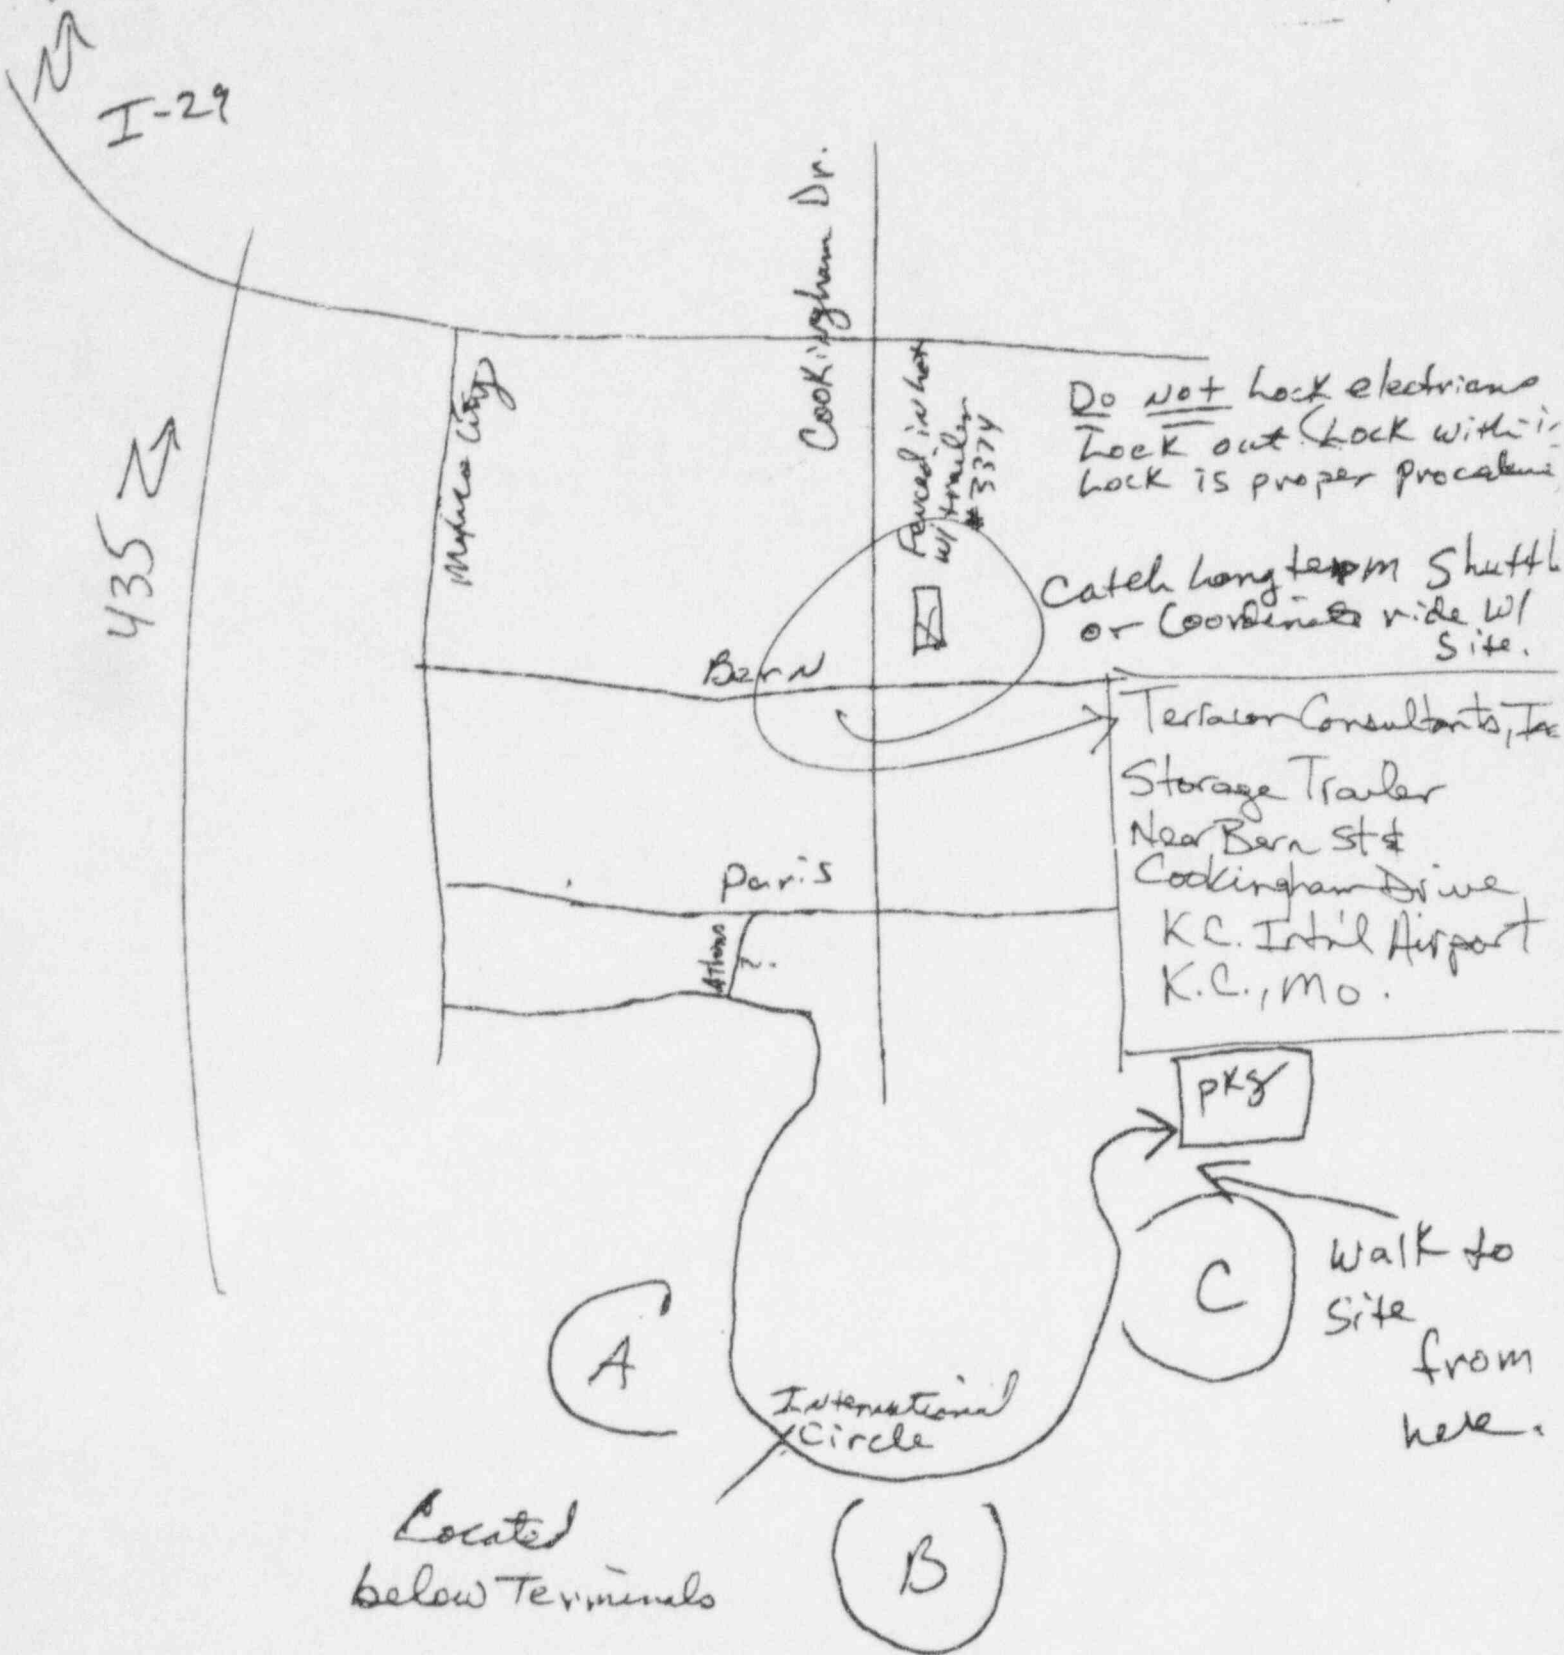 I-29
Cookingham Dr.
Mexico City
435
Fenced in Lot
w/ trailer
#3374
Do Not Lock electricians
Lock out (Lock with in
Lock is proper procedure
Catch Long term Shuttl
or Coordinate ride w/
Site.
Bern
Terracon Consultants, Inc
Storage Trailer
Near Bern St &
Cookingham Drive
K.C. Int'l Airport
K.C., Mo.
Paris
Athens
pkg
C
Walk to
Site
from
here.
A
International
Circle
Located
below Terminals
B